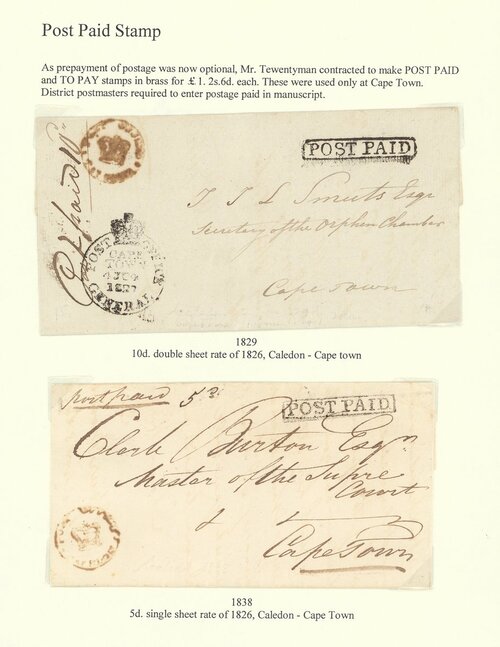 Post Paid Stamp
As prepayment of postage was now optional, Mr. Tewentyman contracted to make POST PAID
and TO PAY stamps in brass for £1. 2s.6d. each. These were used only at Cape Town.
District postmasters required to enter postage paid in manuscript.
POST PAID
paid
J J L Smuts Esqr
Secretary of the Orphan Chamber
Cape Town
POST OFFICE
CAPE
TOWN
GENERAL
1829
10d. double sheet rate of 1826, Caledon - Cape town
post paid 5d
POST PAID
Clerk Burton Esqr
Master of the Supre
Court
&
Cape Town
1838
5d. single sheet rate of 1826, Caledon - Cape Town